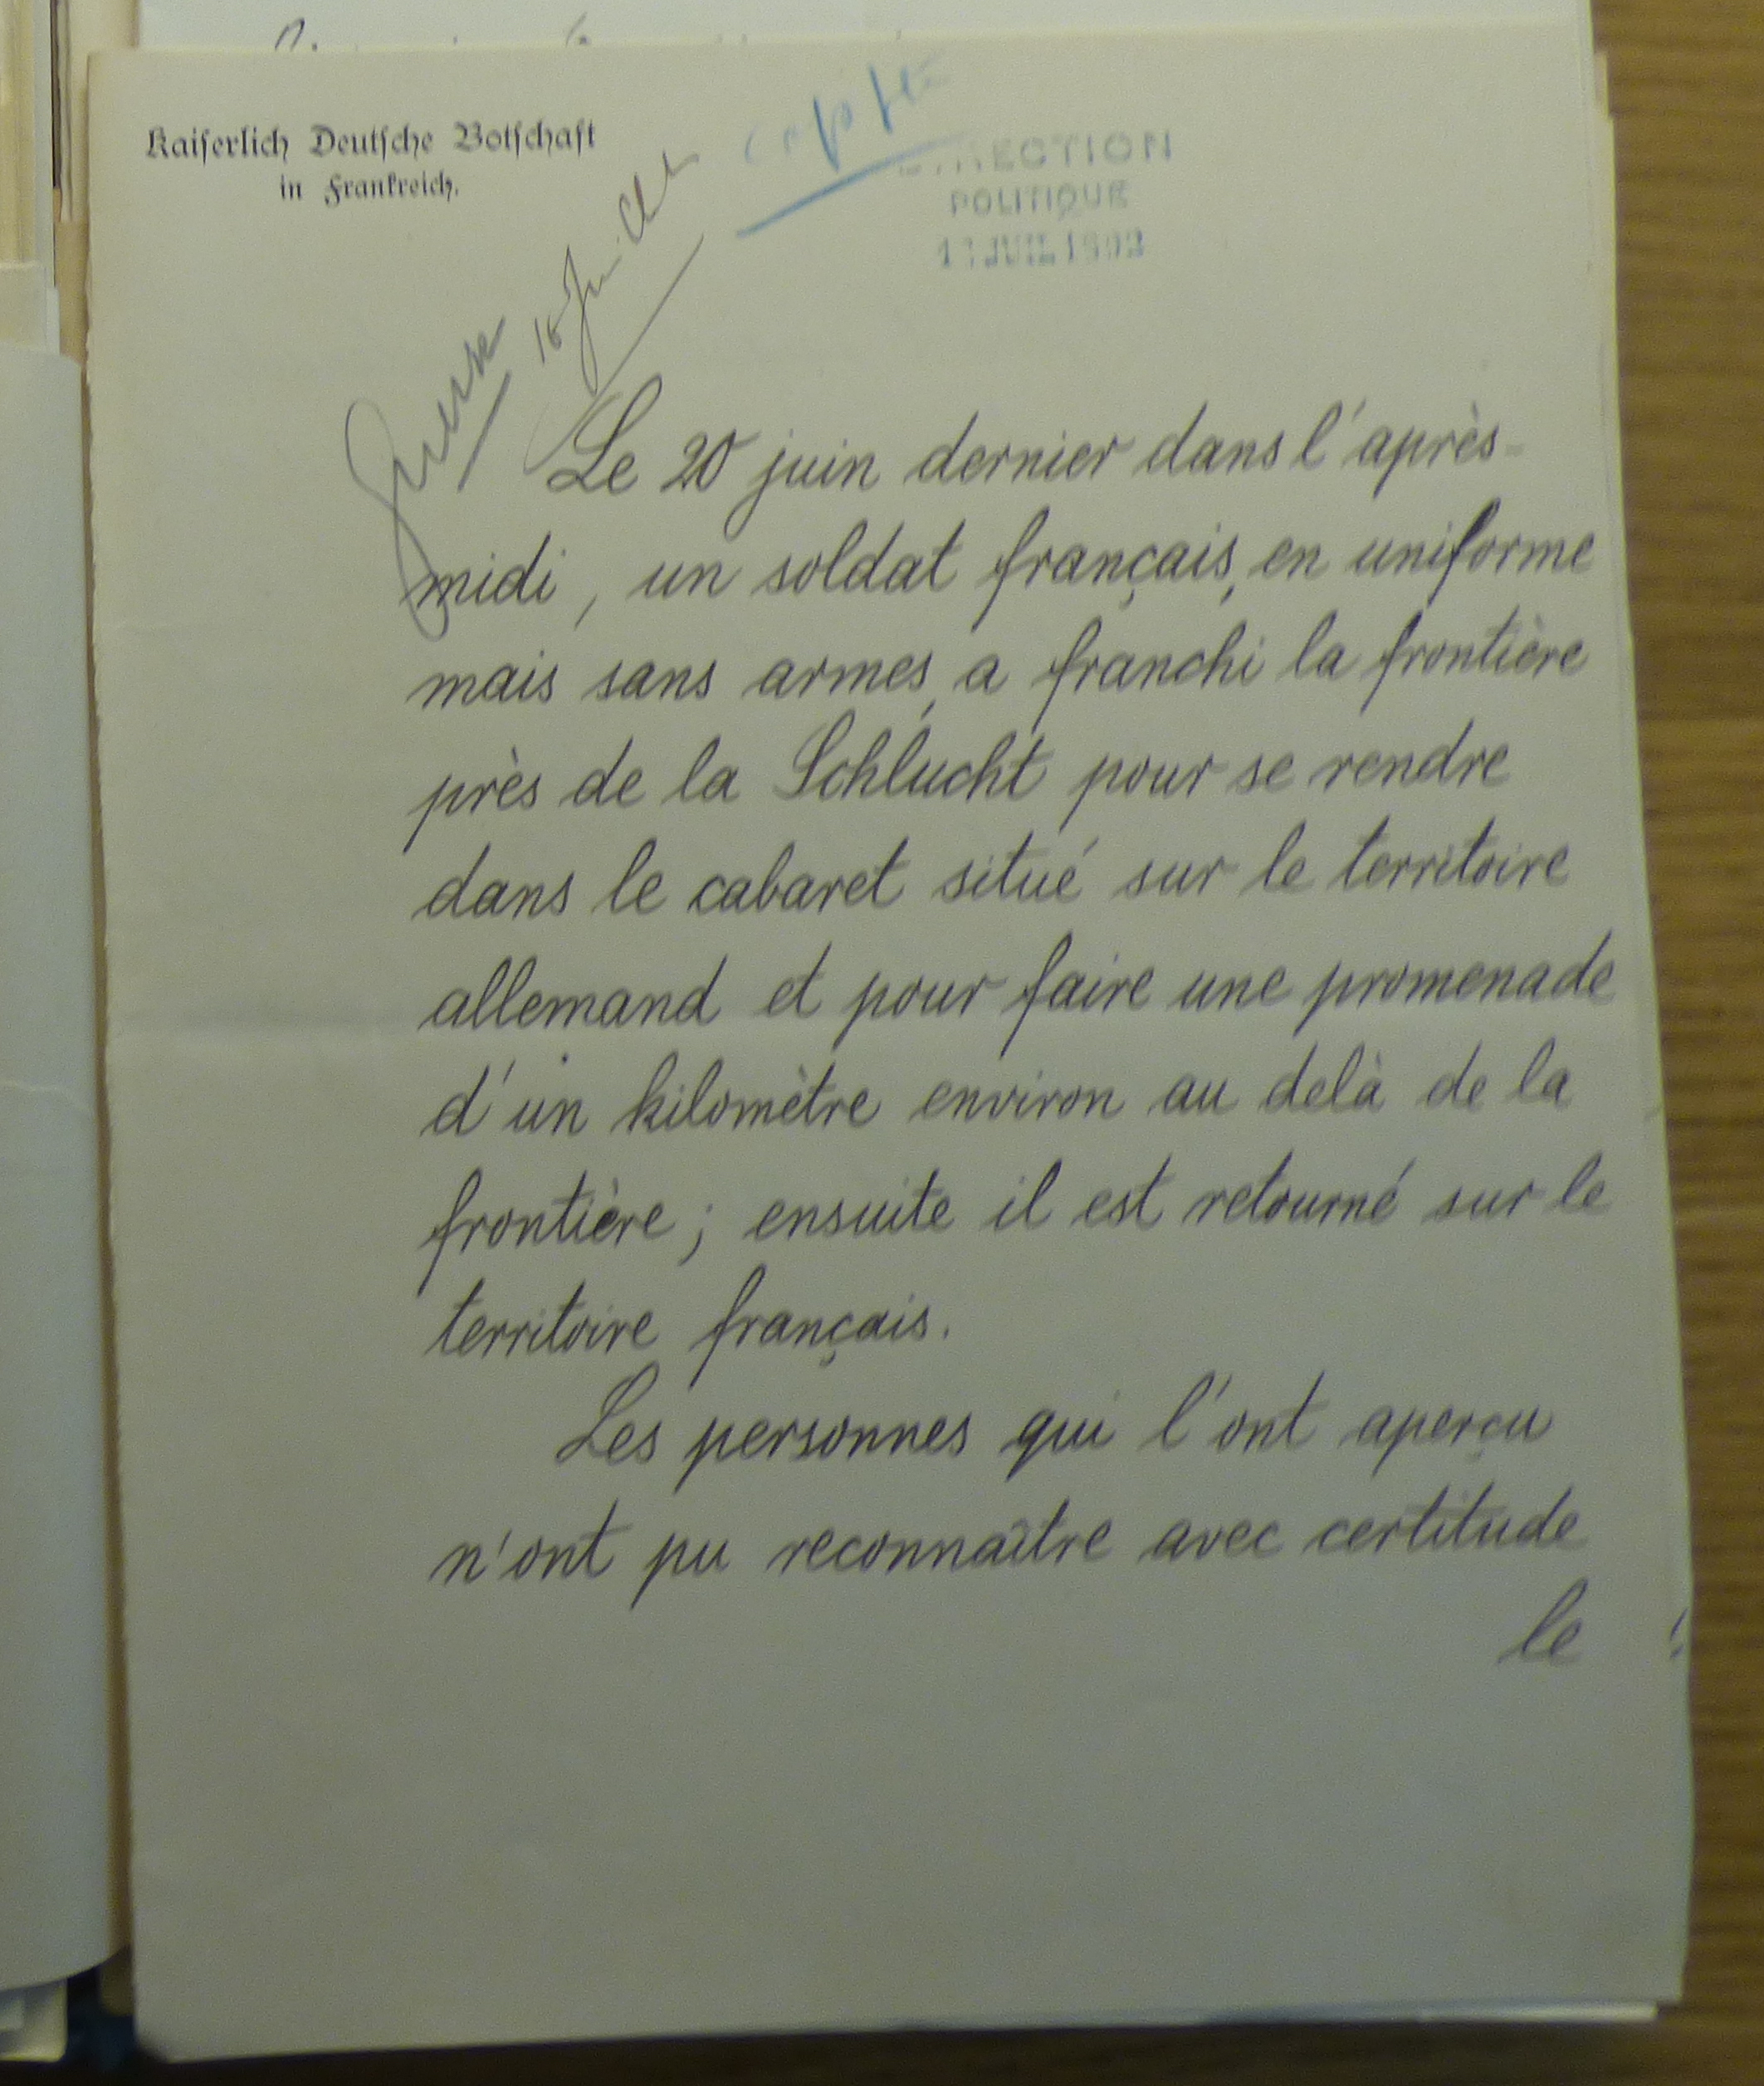 Kaiserlich Deutsche Botschaft
in Frankreich.
copie
DIRECTION
POLITIQUE
JUIL
Guerre 18 Juillet
Le 20 juin dernier dans l'après-
midi, un soldat français, en uniforme
mais sans armes, a franchi la frontière
près de la Schlucht pour se rendre
dans le cabaret situé sur le territoire
allemand et pour faire une promenade
d'un kilomètre environ au delà de la
frontière; ensuite il est retourné sur le
territoire français.
Les personnes qui l'ont aperçu
n'ont pu reconnaître avec certitude
le